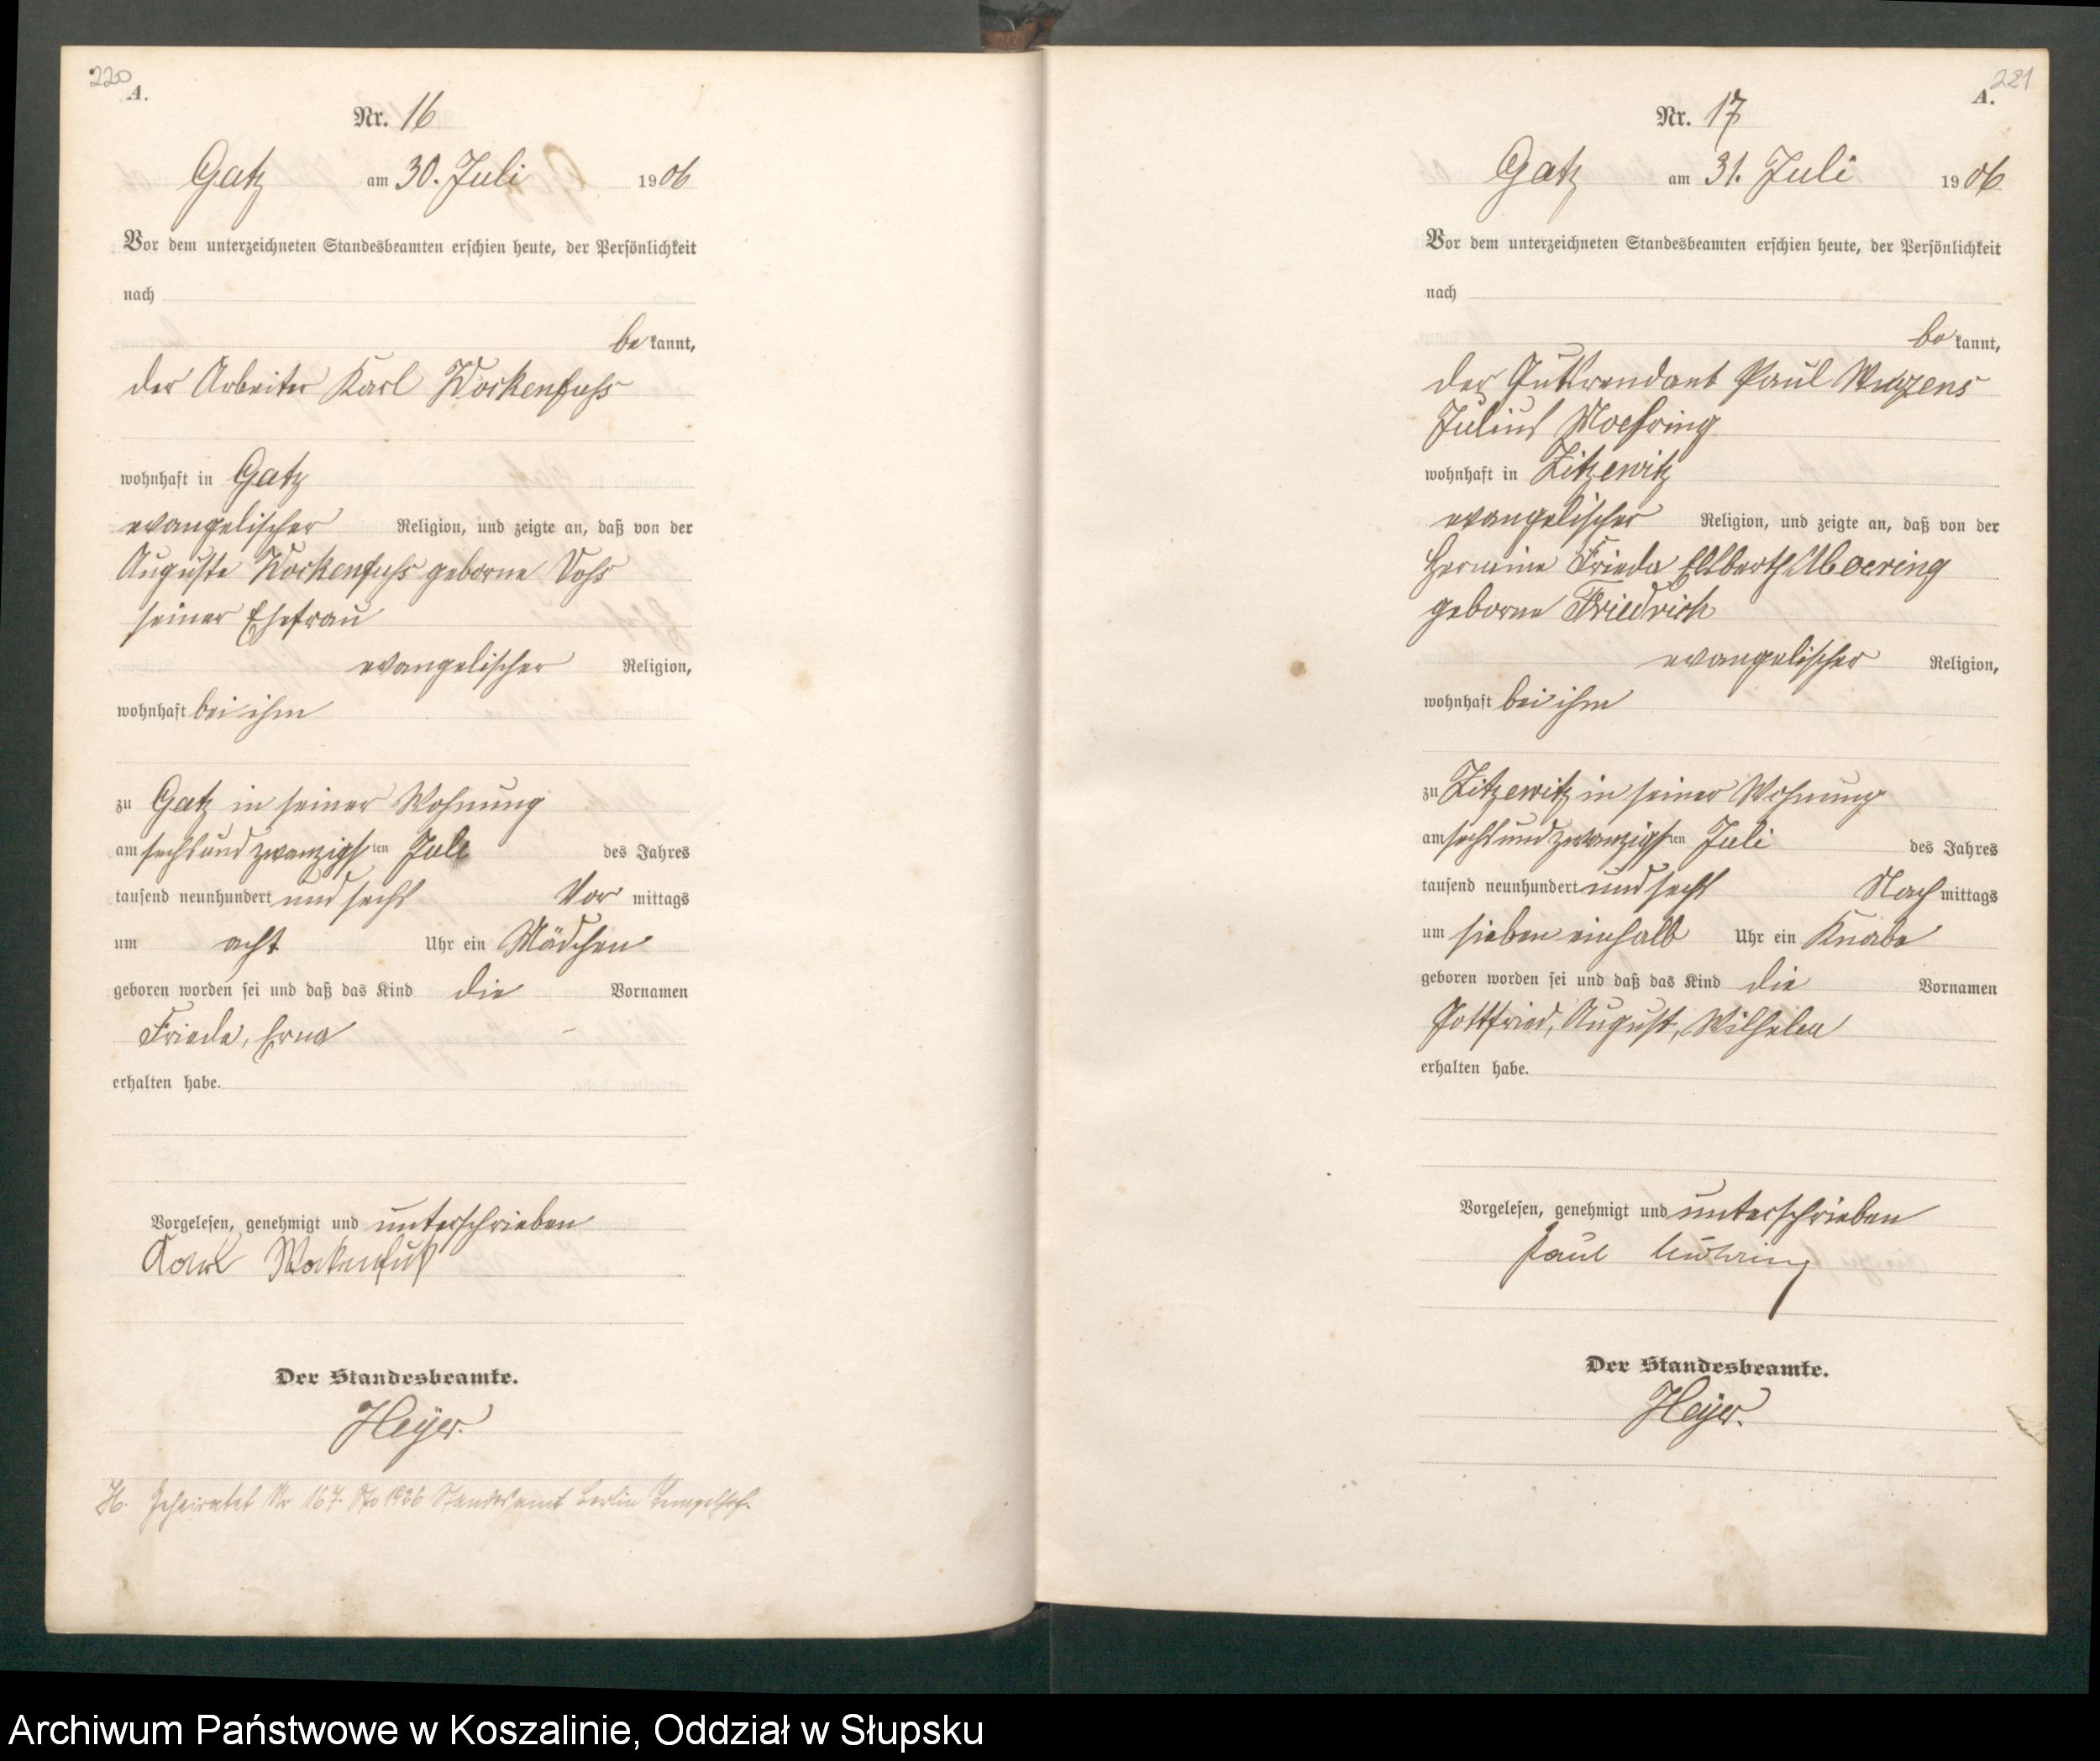 220
A.
Nr. 16
Gatz am 30. Juli 1906
Vor dem unterzeichneten Standesbeamten erschien heute, der Persönlichkeit
nach
be kannt,
der Arbeiter Karl Wockenfuss
wohnhaft in Gatz
evangelischer Religion, und zeigte an, daß von der
Auguste Wockenfuss geborne Voss
seiner Ehefrau
evangelischer Religion,
wohnhaft bei ihm
zu Gatz in seiner Wohnung
am sechsundzwanzigsten Juli des Jahres
tausend neunhundert und sechs Vor mittags
um acht Uhr ein Mädchen
geboren worden sei und daß das Kind die Vornamen
Frieda, Erna
erhalten habe.
Vorgelesen, genehmigt und unterschrieben
Karl Wokenfuß
Der Standesbeamte.
Heyer.
H. Geheiratet Nr 167 1936 Standesamt Berlin Tempelhof.
221
A.
Nr. 17
Gatz am 31. Juli 1906
Vor dem unterzeichneten Standesbeamten erschien heute, der Persönlichkeit
nach
be kannt,
der Gutsrendant Paul
Julius Moehring
wohnhaft in Zitzewitz
evangelischer Religion, und zeigte an, daß von der
Hermine Frieda Moering
geborne Friedrich
evangelischer Religion,
wohnhaft bei ihm
zu Zitzewitz in seiner Wohnung
am sechsundzwanzigsten Juli des Jahres
tausend neunhundert und sechs Nach mittags
um sieben einhalb Uhr ein Knabe
geboren worden sei und daß das Kind die Vornamen
Gottfried, August, Wilhelm
erhalten habe.
Vorgelesen, genehmigt und unterschrieben
Paul Möhring
Der Standesbeamte.
Heyer.
Archiwum Państwowe w Koszalinie, Oddział w Słupsku